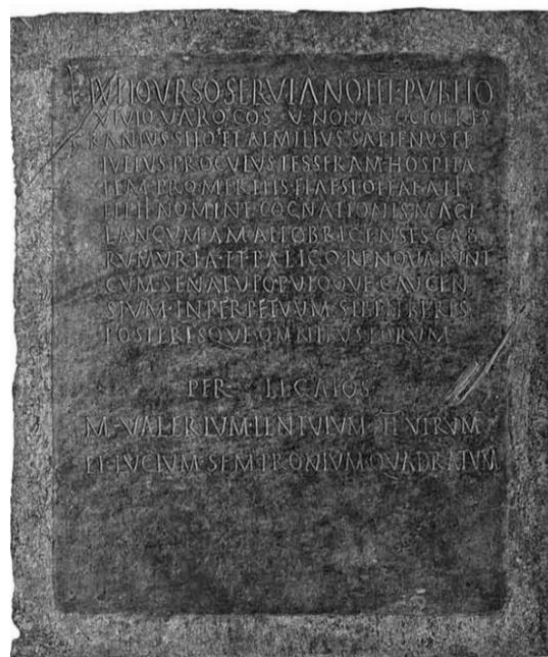 L·IVLIO VRSO·SERVIANO III·PVBLIO
VIVIO VARO COS V NONAS OCTOBRES
GRANIVS SILO ET AEMILIVS SAPIENVS ET
IVLIVS PROCVLVS TESSERAM·HOSPITA
LEM·PRO·MERITIS·ELAESI·OTTAE·AII·
FILII NOMINE COGNATIONIS MAGI
LANCVM AMALLOBRICENSES CAB
RVMVRIA·ET·PALIGO·RENOVARVNT
CVM·SENATV POPVLOQVE CAVCEN
SIVM·IN PERPETVVM SIBI LIBERIS
POSTERISQVE OMNIBVS EORVM
PER LEGATOS
M·VALERIVM·LENTVLVM·IIVIRVM
ET·LVCIVM·SEMPRONIVM QVADRATVM